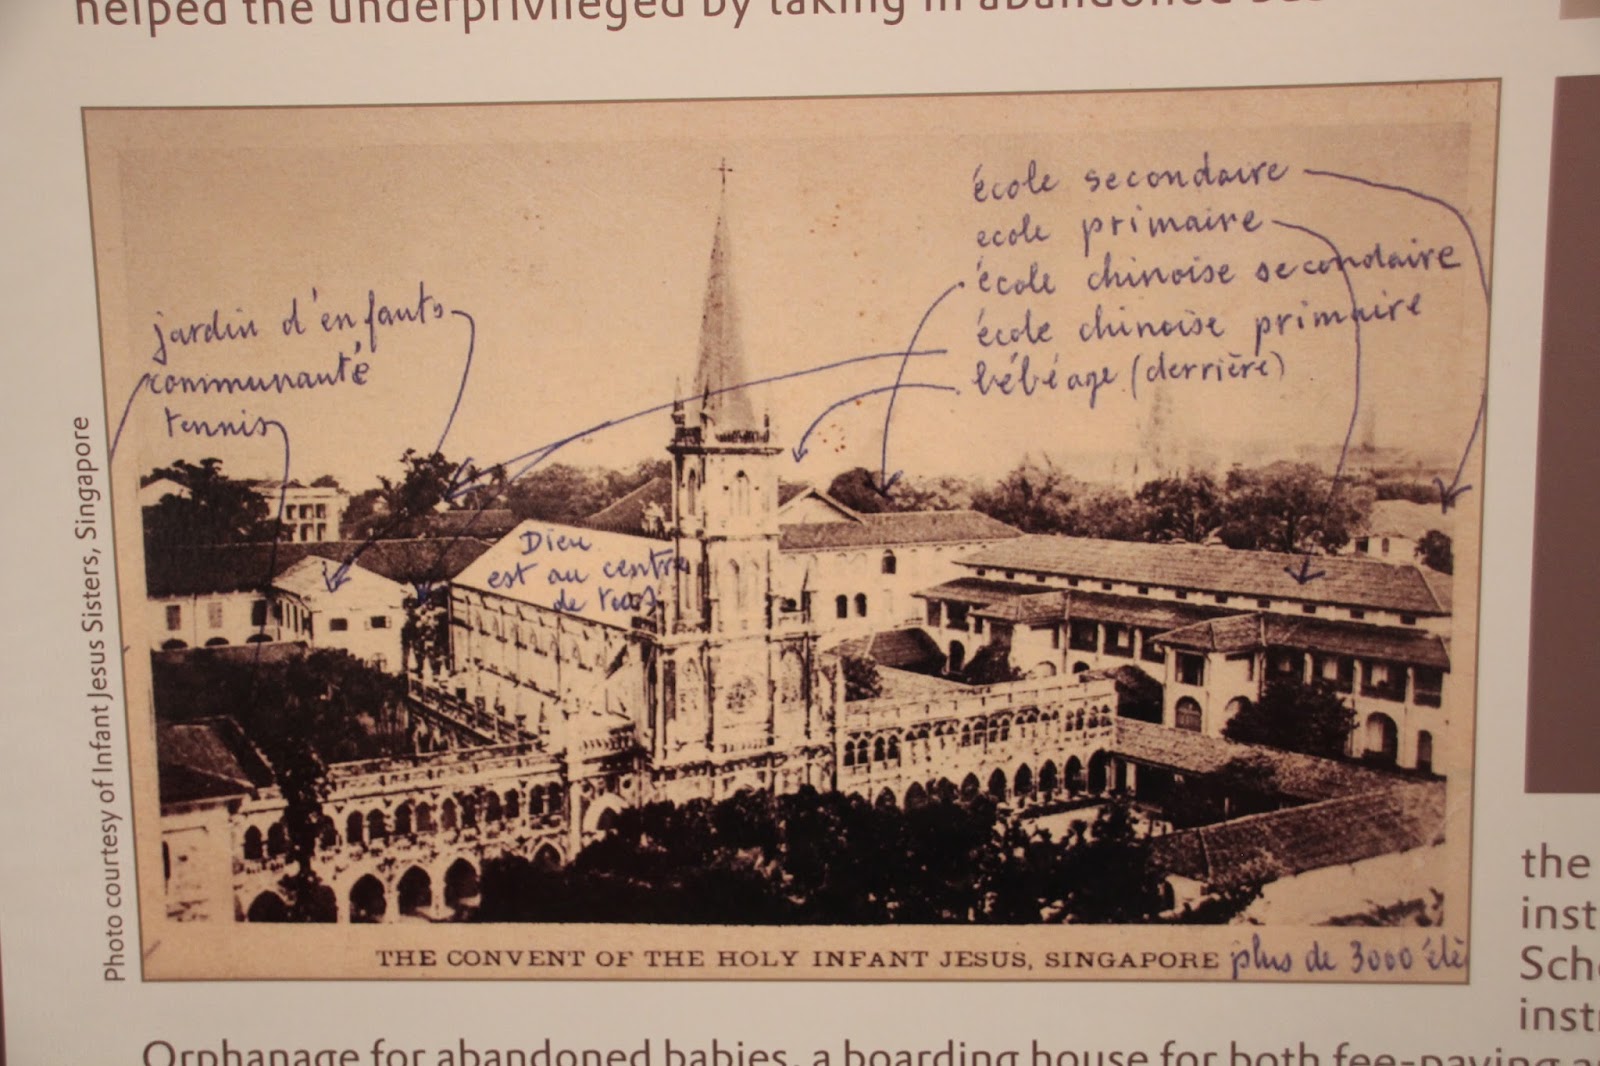 helped the underprivileged by taking in abandoned
Photo courtesy of Infant Jesus Sisters, Singapore
jardin d'enfants
communauté
tennis
école secondaire
ecole primaire
école chinoise secondaire
école chinoise primaire
bébéage (derrière)
Dieu
est au centre
de tout
THE CONVENT OF THE HOLY INFANT JESUS, SINGAPORE plus de 3000 élè
the
inst
Scho
inst
Orphanage for abandoned babies, a boarding house for both fee-paying a